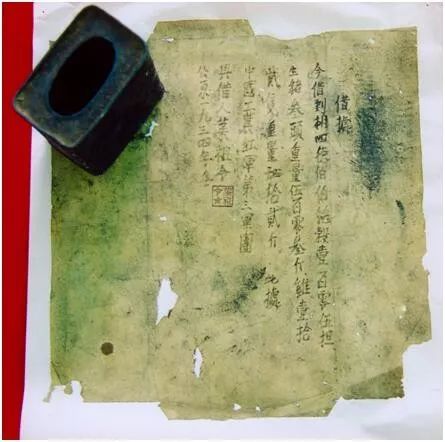 借據
今借到胡四德伯伯稻穀壹百零伍担
生豬叁頭重量伍百零叁斤雞壹拾
貳隻重量 拾貳斤 此據
中國工農紅軍第三軍團
具借 葉祖令
公元一九三四年冬